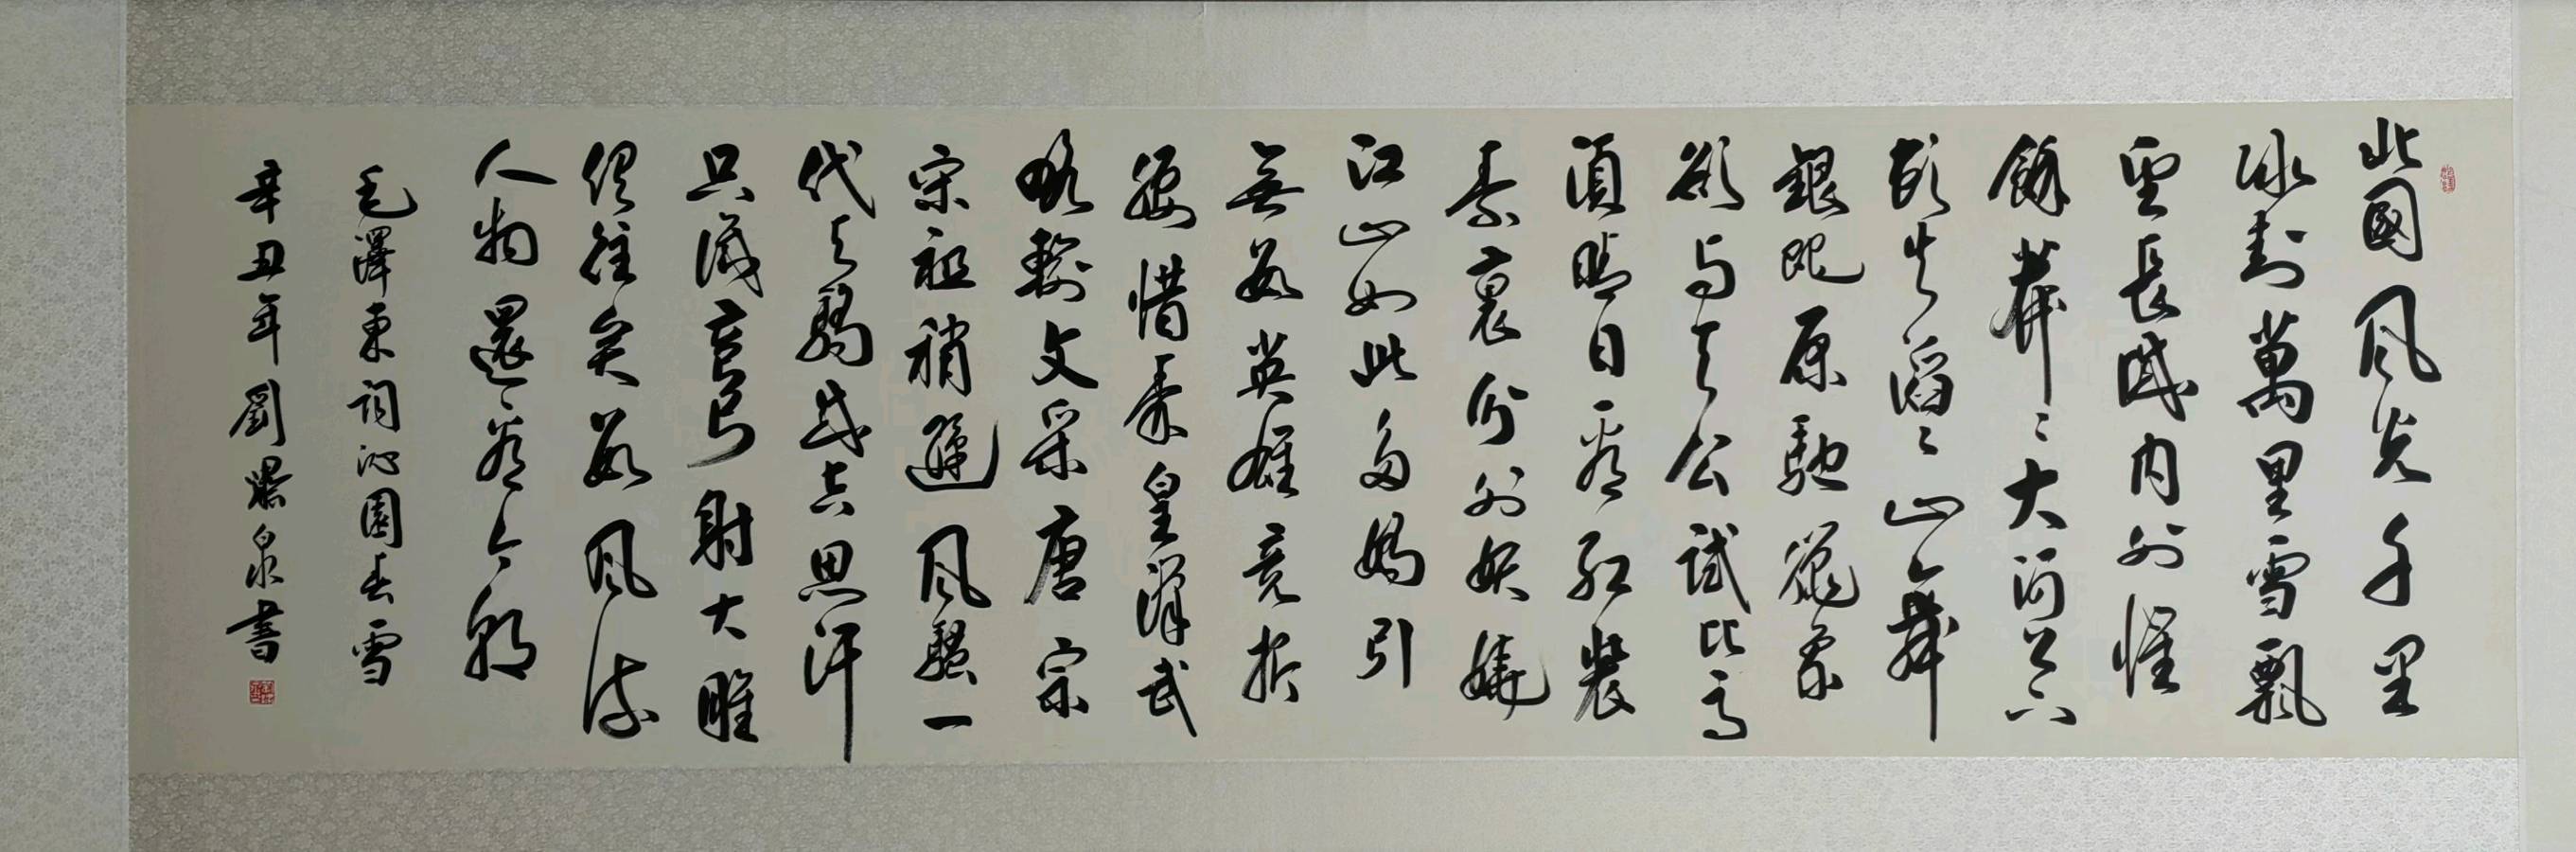 北國風光千里
冰封萬里雪飄
望長城內外惟
餘莽〻大河上下
頓失滔〻山舞
銀蛇原馳蠟象
欲與天公試比高
須晴日看紅裝
素裹分外妖嬈
江山如此多嬌引
無數英雄競折
腰惜秦皇漢武
略輸文采唐宗
宋祖稍遜風騷一
代天驕成吉思汗
只識彎弓射大雕
俱往矣數風流
人物還看今朝
毛澤東詞沁園春雪
辛丑年劉泉書